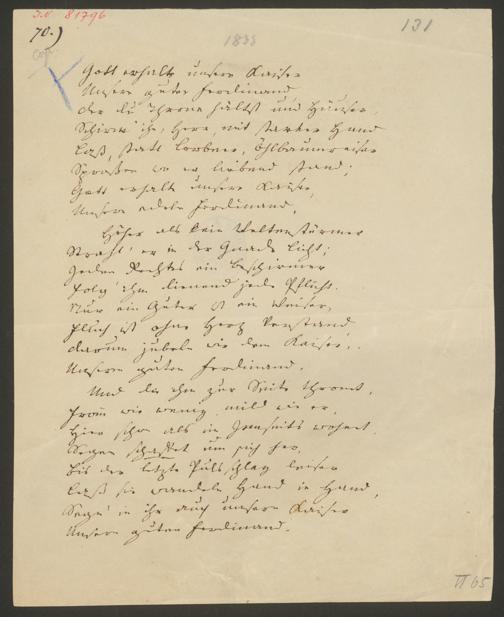 I.N. 81796
70.)
131
1835
Gott erhalte unsern Kaiser
Unsern guten Ferdinand
Der du Throne hältst und Häuser,
Schirm' ihn, Herr, mit starker Hand
Laß, statt Lorbeer, Öhlbaumreiser
Sprossen wo er liebend stand;
Gott erhalte unsern Kaiser,
Unsern edeln Ferdinand.
Höher als kein Weltenstürmer
Strahl' er in der Gnade Licht;
Jeden Rechtes ein Beschirmer
Folg' ihm dienend jede Pflicht.
Nur ein Guter ist ein Weiser,
ist ohne Herz Verstand
Darum jubeln wir dem Kaiser,
Unserm guten Ferdinand.
Und die ihm zur Seite thront,
Fromm wie wenig, mild wie er,
Hier schon als in Jenseits wohnt
Segen schaffet um sich her,
Bis der letzte Pulsschlag leiser
Laß sie wandeln Hand in Hand,
Segn' in ihr auch unsern Kaiser
Unsern guten Ferdinand.
II 65